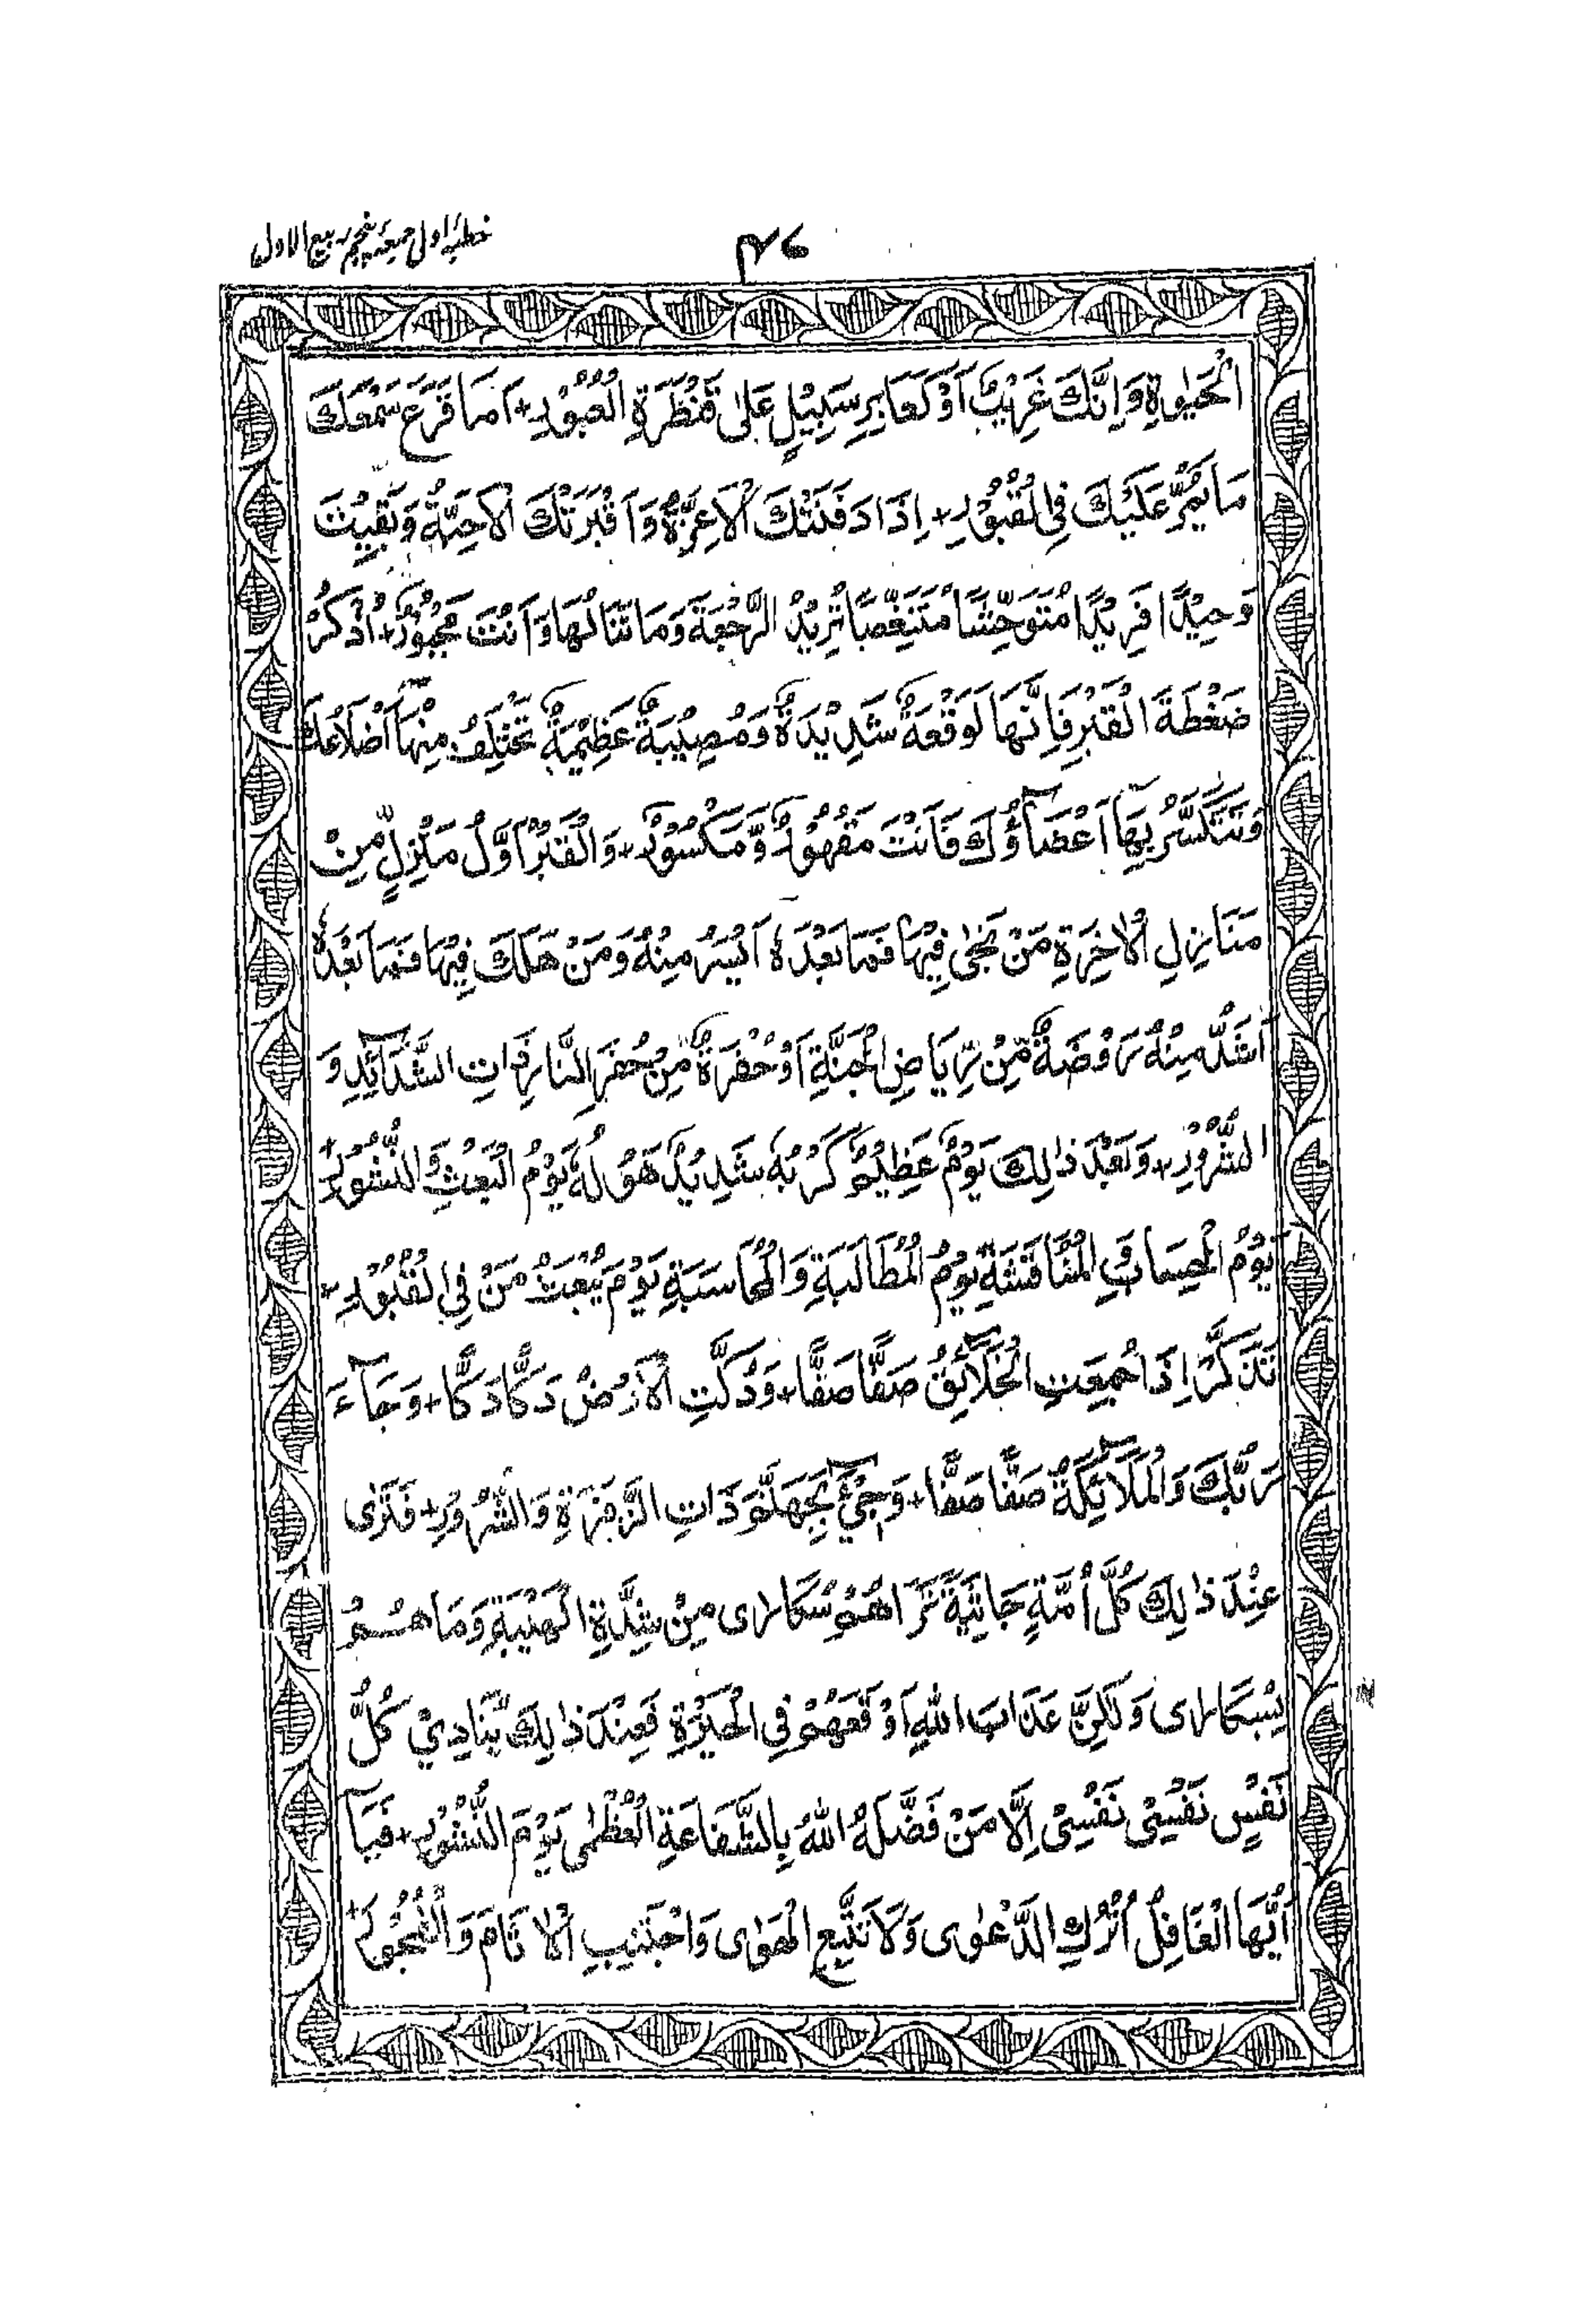 خطبۂ اولی جمعۂ پنجم ربیع الاول
۴۶
الْحَيٰوةِ وَاِنَّكَ غَرِيْبٌ اَوْ كَعَابِرِ سَبِيْلٍ عَلٰى قَنْطَرَةِ الْعُبُوْرِ+ اَمَا قَرَعَ سَمْعَكَ
مَا يَمُرُّ عَلَيْكَ فِى الْقُبُوْرِ+ اِذَا دَفَنَتْكَ الْاَعِزَّةُ وَاَقْبَرَتْكَ الْاَحِبَّةُ وَبَقِيْتَ
وَحِيْدًا فَرِيْدًا مُتَوَحِّشًا مُتَنَغِّصًا تُرِيْدُ الرَّجْعَةَ وَمَا تَنَالُهَا وَاَنْتَ مَجْبُوْرٌ+ اُذْكُرْ
ضَغْطَةَ الْقَبْرِ فَاِنَّهَا لَوَقْعَةٌ شَدِيْدَةٌ وَمُصِيْبَةٌ عَظِيْمَةٌ تَخْتَلِفُ مِنْهَا اَضْلَاعُكَ
وَتَتَكَسَّرُ بِهَا اَعْضَآؤُكَ فَاَنْتَ مَقْهُوْرٌ وَّمَكْسُوْرٌ+ وَالْقَبْرُ اَوَّلُ مَنْزِلٍ مِّنْ
مَنَازِلِ الْاٰخِرَةِ مَنْ نَجٰى فِيْهَا فَمَا بَعْدَهٗ اَيْسَرُ مِنْهُ وَمَنْ هَلَكَ فِيْهَا فَمَا بَعْدَهٗ
اَشَدُّ مِنْهُ رَوْضَةٌ مِّنْ رِيَاضِ الْجَنَّةِ اَوْ حُفْرَةٌ مِّنْ حُفَرِ النَّارِ ذَاتِ الشَّدَآئِدِ وَ
الشُّرُوْرِ+ وَبَعْدَ ذٰلِكَ يَوْمٌ عَظِيْمٌ كَرْبُهٗ شَدِيْدٌ هَوْلُهٗ يَوْمُ الْبَعْثِ وَ النُّشُوْرِ+
يَوْمُ الْحِسَابِ وَ الْمُنَاقَشَةِ يَوْمُ الْمُطَالَبَةِ وَالْمُحَاسَبَةِ يَوْمَ يُبْعَثُ مَنْ فِى الْقُبُوْرِ+
تَذَكَّرْ اِذَا جُمِعَتِ الْخَلَآئِقُ صَفًّا صَفًّا+ وَدُكَّتِ الْاَرْضُ دَكًّا دَكًّا+ وَجَآءَ
رَبُّكَ وَالْمَلَآئِكَةُ صَفًّا صَفًّا+ وَجِيْٓءَ بِجَهَنَّمَ ذَاتِ الزَّفْرَةِ وَالشُّرُوْرِ+ فَتَرٰى
عِنْدَ ذٰلِكَ كُلَّ اُمَّةٍ جَاثِيَةً تَرَاهُمْ سُكَارٰى مِنْ شِدَّةِ الْهَيْبَةِ وَمَا هُمْ
بِسُكَارٰى وَلٰكِنَّ عَذَابَ اللّٰهِ اَوْقَعَهُمْ فِى الْحَيْرَةِ فَعِنْدَ ذٰلِكَ يُنَادِيْ كُلُّ
نَفْسٍ نَفْسِيْ نَفْسِيْ اِلَّا مَنْ فَضَّلَهُ اللّٰهُ بِالشَّفَاعَةِ الْعُظْمٰى يَوْمَ النُّشُوْرِ+ فَيَآ
اَيُّهَا الْغَافِلُ اُتْرُكِ الدَّعْوٰى وَلَا تَتَّبِعِ الْهَوٰى وَاجْتَنِبِ الْاٰثَامَ وَالْفُجُوْرَ+